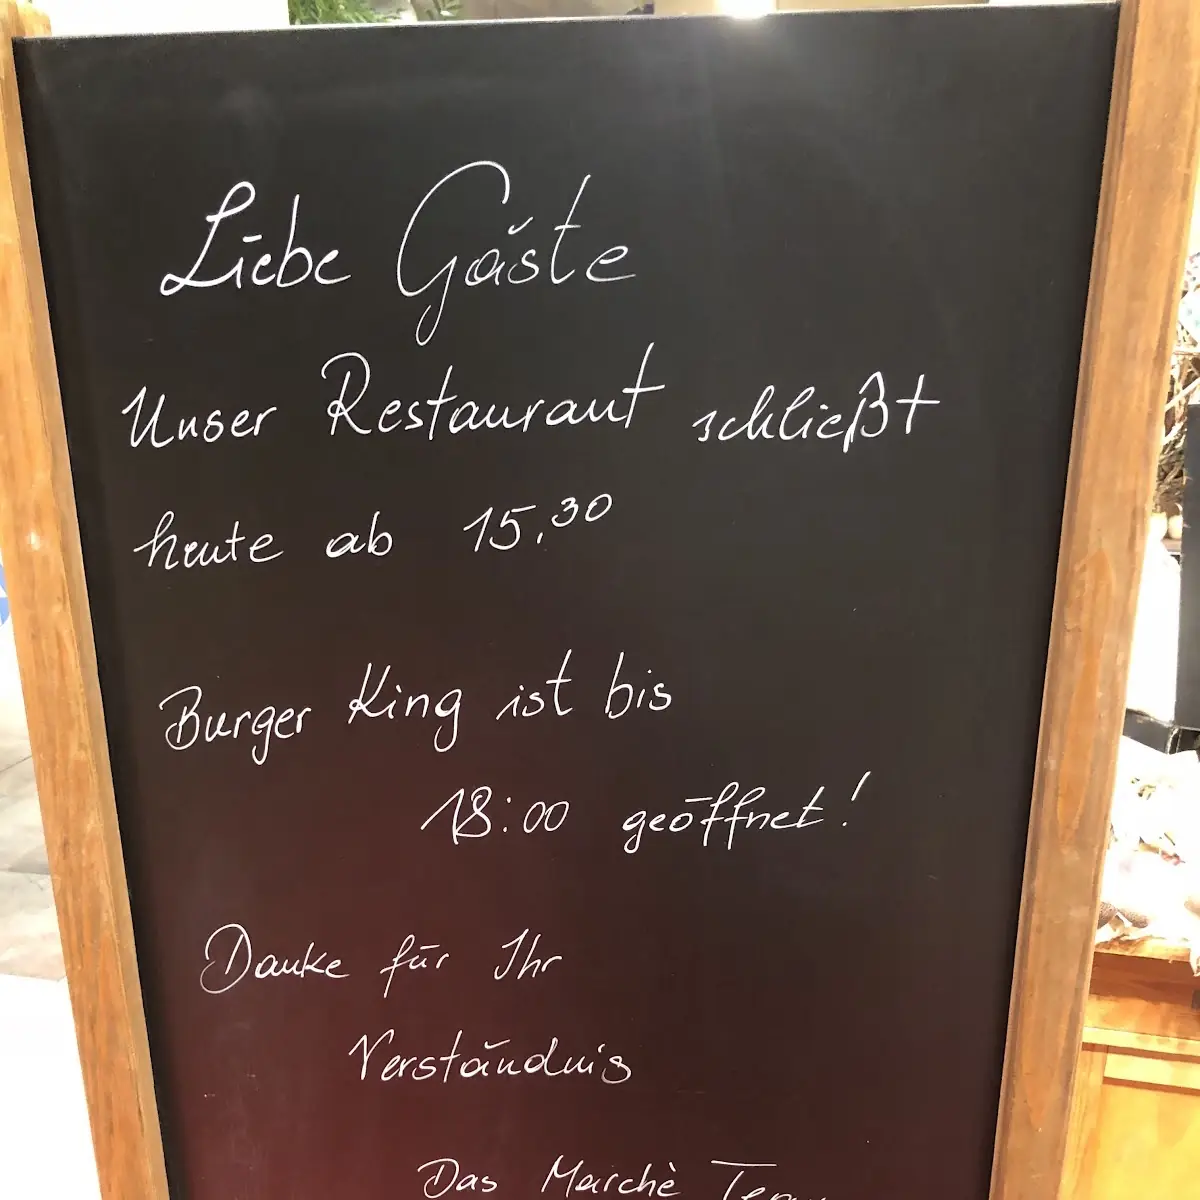 Liebe Gäste
Unser Restaurant schließt
heute ab 15.30
Burger King ist bis
18:00 geöffnet!
Danke für Ihr
Verständnis
Das Marchè Team